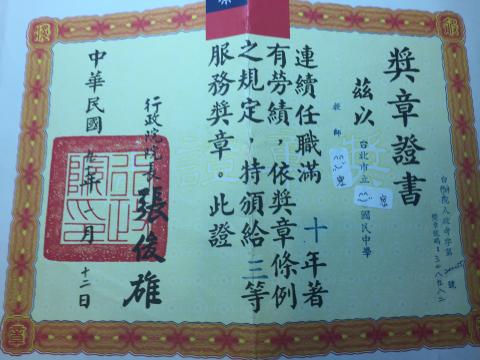 獎章證書
號
獎章號碼：
茲以
台北市立 國民中學
教師
連續任職滿十年著
有勞績，依獎章條例
之規定，特頒給三等
服務獎章。此證
行政院院長 張俊雄
中華民國 年 月 十二日